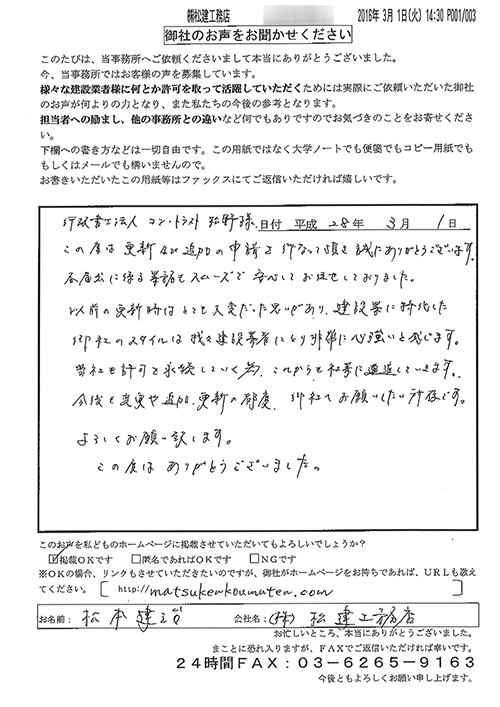 ㈱松建工務店 2016年 3月 1日(火) 14:30 P001/003
御社のお声をお聞かせください
このたびは、当事務所へご依頼くださいまして本当にありがとうございました。
今、当事務所ではお客様の声を募集しています。
様々な建設業者様に何とか許可を取って活躍していただくためには実際にご依頼いただいた御社
のお声が何よりの力となり、また私たちの今後の参考となります。
担当者への励まし、他の事務所との違いなど何でもありですのでお気づきのことをお寄せくださ
い。
下欄への書き方などは一切自由です。この用紙ではなく大学ノートでも便箋でもコピー用紙でも
もしくはメールでも構いませんので。
お書きいただいたこの用紙等はファックスにてご返信いただければ嬉しいです。
行政書士法人 コントラスト 様 日付 平成 28年 3月 1日
この度は更新及び追加の申請を行なって頂き誠にありがとうございます。
各届出に係る業務もスムーズで安心してお任せしておりました。
以前の更新時はとても大変だった思いがあり、建設業に特化した
御社のスタイルは我々建設業者にとり非常に心強いと感じます。
当社も許可を永続していく為、これからも社業に邁進していきます。
今後も変更や追加、更新の都度、御社へお願いしたい所存です。
よろしくお願い致します。
この度はありがとうございました。
このお声を私どものホームページに掲載させていただいてもよろしいでしょうか?
☑掲載OKです □匿名であればOKです □NGです
※OKの場合、リンクもさせていただきたいのですが、御社がホームページをお持ちであれば、URLも教え
てください。[ http://matsukenkoumuten.com ]
お名前: 松本建治 会社名: (株) 松建工務店
お忙しいところ、本当にありがとうございました。
まことに恐れ入りますが、FAXでご返信いただければ幸いです。
24時間FAX:03-6265-9163
今後ともよろしくお願い申し上げます。